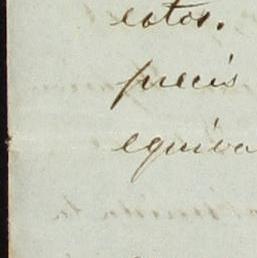 estos.
precis
equiva